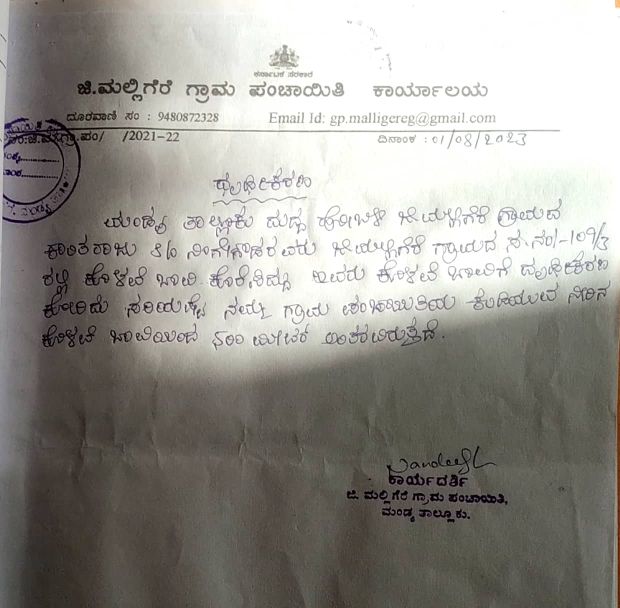 ಕರ್ನಾಟಕ ಸರಕಾರ
ಜಿ.ಮಲ್ಲಿಗೆರೆ ಗ್ರಾಮ ಪಂಚಾಯಿತಿ ಕಾರ್ಯಾಲಯ
ದೂರವಾಣಿ ಸಂ : 9480872328 Email Id: gp.malligereg@gmail.com
/2021-22 ದಿನಾಂಕ : 01/08/2023
ದೃಢೀಕರಣ
ಮಂಡ್ಯ ತಾಲ್ಲೂಕು ದುದ್ದ ಹೋಬಳಿ ಜಿ.ಮಲ್ಲಿಗೆರೆ ಗ್ರಾಮದ
ಕಾಂತರಾಜು S/o ನಿಂಗೇಗೌಡರವರು ಜಿ.ಮಲ್ಲಿಗೆರೆ ಗ್ರಾಮದ ಸ.ನಂ:-109/3
ರಲ್ಲಿ ಕೊಳವೆ ಬಾವಿ ಕೊರೆಸಿದ್ದು ಇವರು ಕೊಳವೆ ಬಾವಿಗೆ ದೃಢೀಕರಣ
ಕೋರಿದ್ದು ಸರಿಯಷ್ಟೆ ನಮ್ಮ ಗ್ರಾಮ ಪಂಚಾಯಿತಿಯ ಕುಡಿಯುವ ನೀರಿನ
ಕೊಳವೆ ಬಾವಿಯಿಂದ ಮೀಟರ್ ಅಂತರವಿರುತ್ತದೆ.
ಕಾರ್ಯದರ್ಶಿ
ಜಿ. ಮಲ್ಲಿಗೆರೆ ಗ್ರಾಮ ಪಂಚಾಯಿತಿ,
ಮಂಡ್ಯ ತಾಲ್ಲೂಕು.